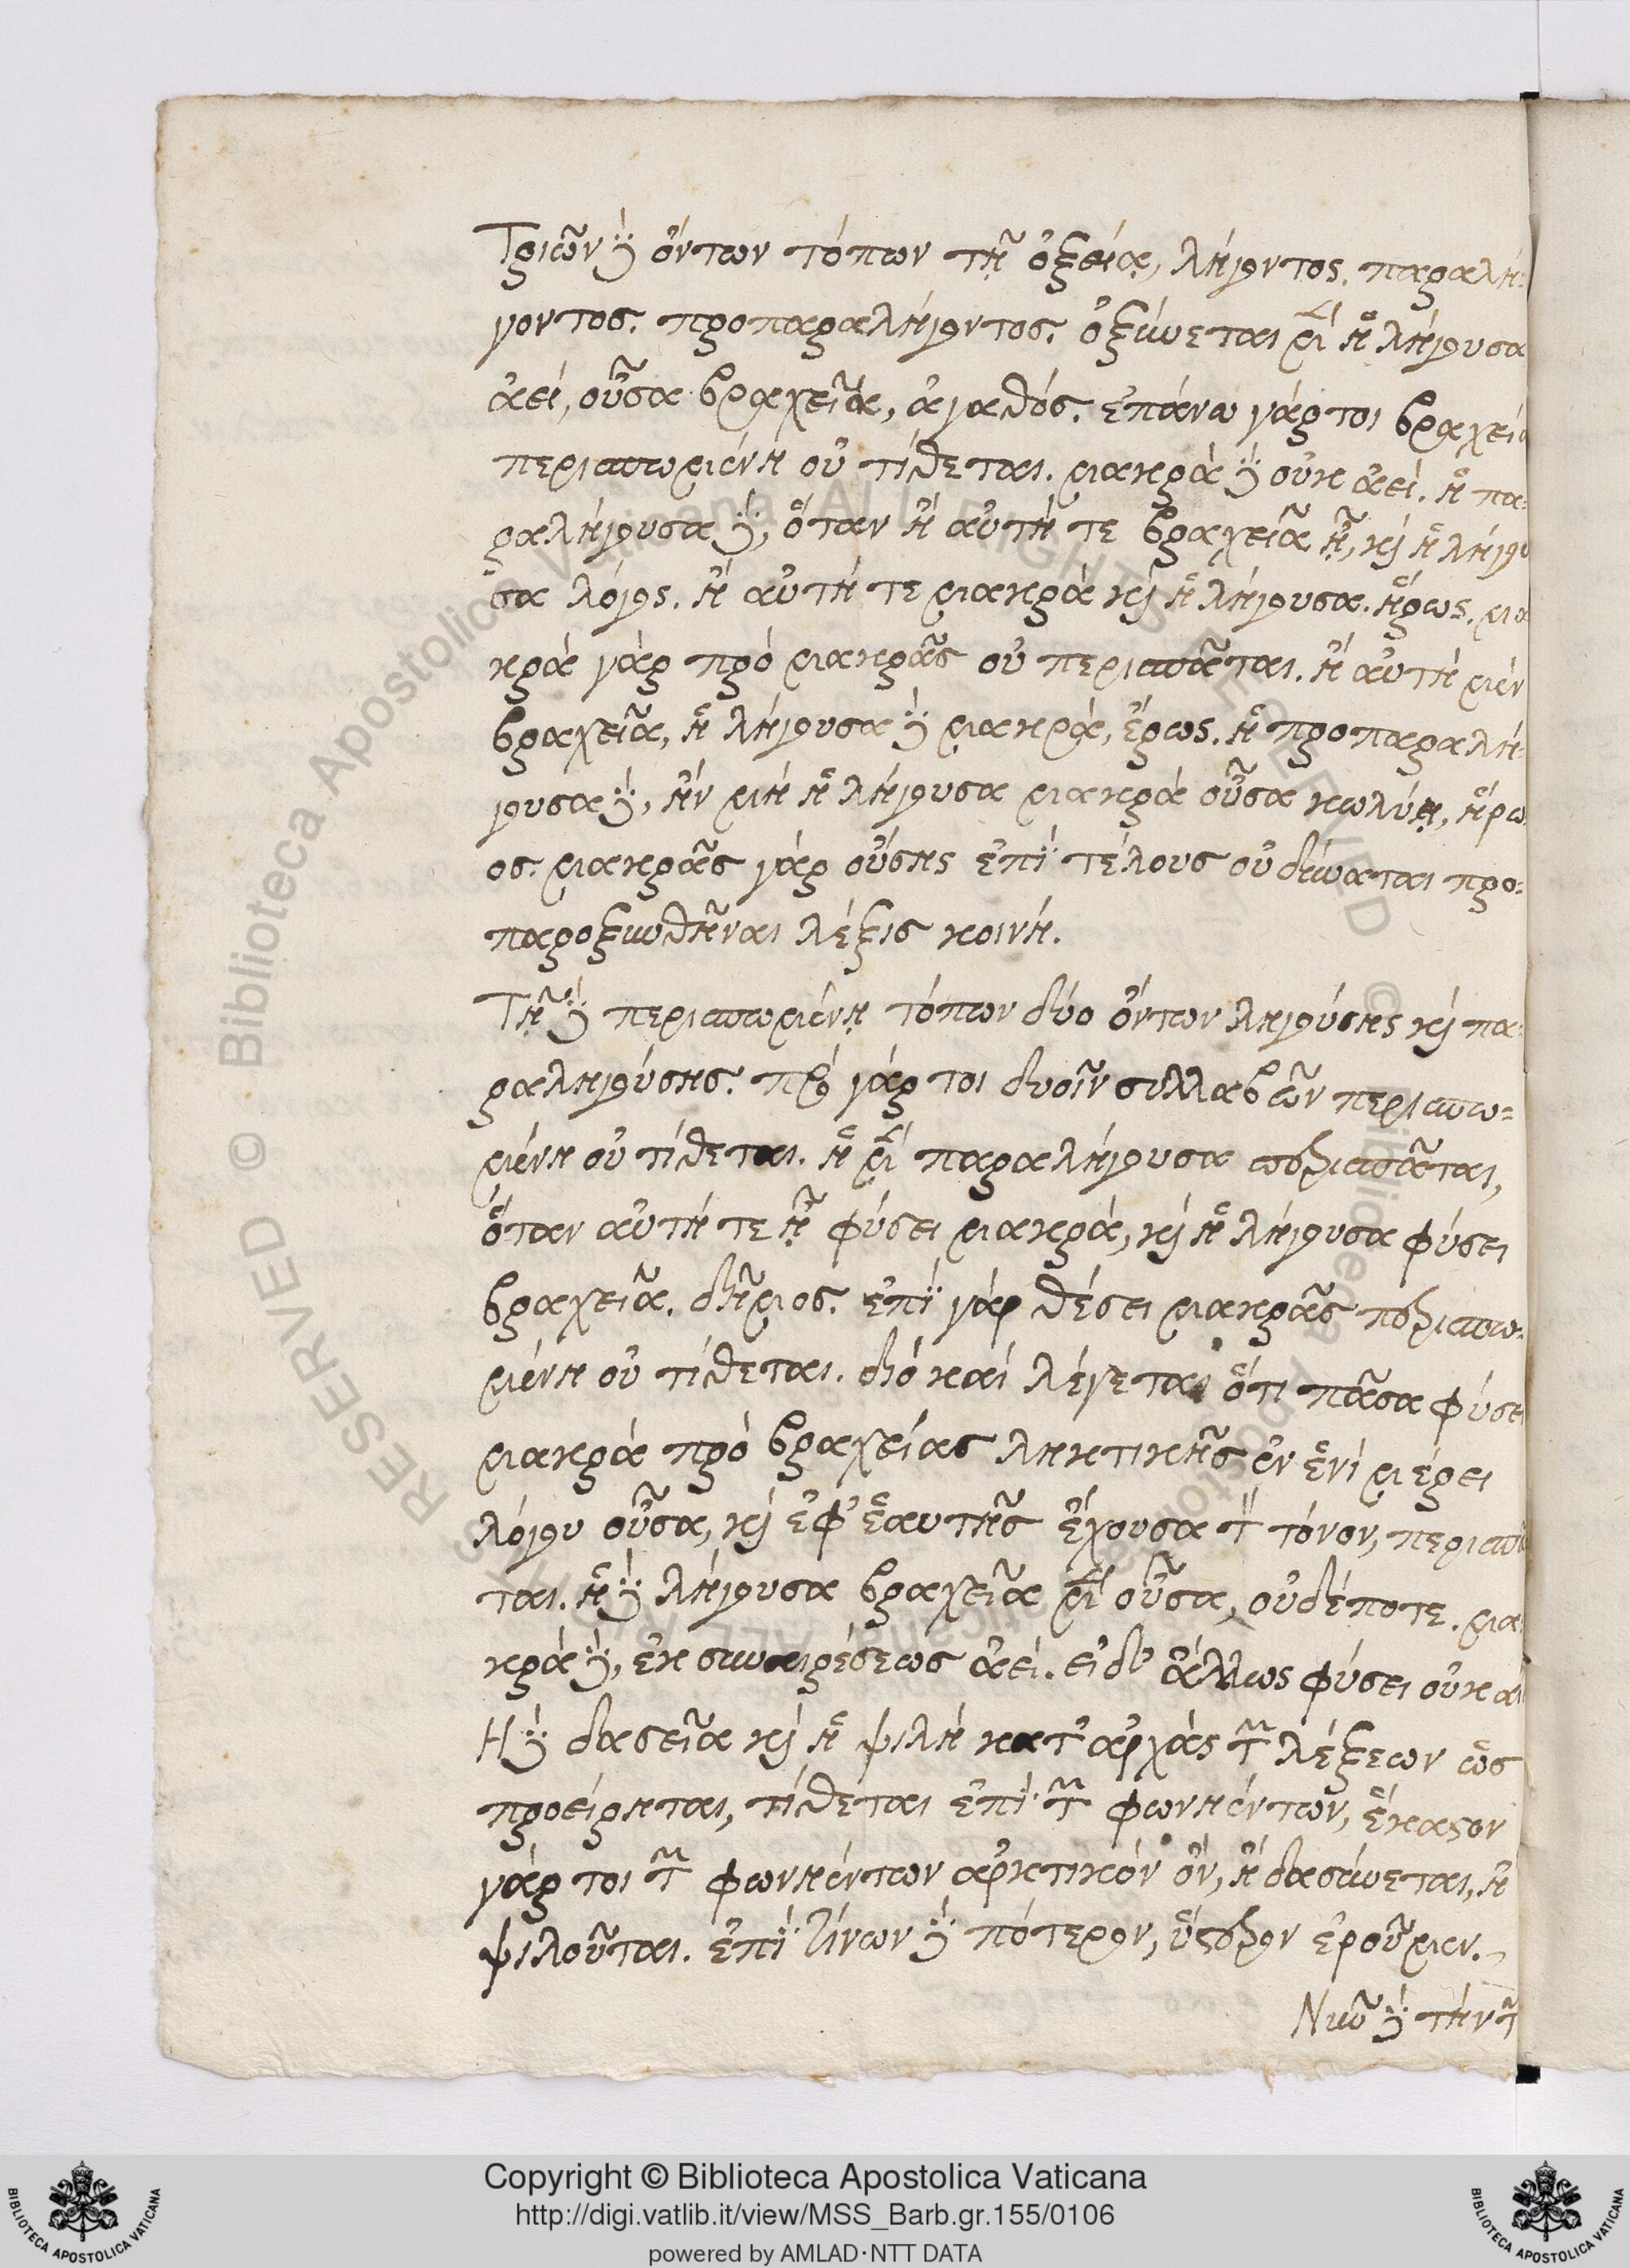 Τριῶν δὲ ὄντων τόπων τῇ ὀξείᾳ, λήγοντος. παραλή-
γοντος. προπαραλήγοντος. ὀξύνεται μὲν ἡ λήγουσα
ἀεί, οὖσα βραχεῖα, ἀγαθός. ἐπάνω γάρ τοι βραχεία
περισπωμένη οὐ τίθεται. μακρὰ δὲ οὐκ ἀεί. ἡ πα-
ραλήγουσα δὲ, ὅταν ἢ αὐτή τε βραχεῖα ᾖ, καὶ ἡ λήγου
σα λόγος. ἢ αὐτή τε μακρὰ καὶ ἡ λήγουσα. ἥρως. μα
κρὰ γὰρ πρὸ μακρᾶς οὐ περισπᾶται. ἢ αὐτὴ μὲν
βραχεῖα, ἡ λήγουσα δὲ μακρά, ἔρως. ἡ προπαραλή-
γουσα δὲ, ἢν μὴ ἡ λήγουσα μακρὰ οὖσα κωλύῃ, ἥρω
ος. μακρᾶς γὰρ οὔσης ἐπὶ τέλους οὐ δύναται προ-
παροξυνθῆναι λέξις κοινή.
Τῇ δὲ περισπωμένῃ τόπων δύο ὄντων ληγούσης καὶ πα-
ραληγούσης. πρὸ γάρ τοι δυοῖν συλλαβῶν περισπω-
μένη οὐ τίθεται. ἡ μὲν παραλήγουσα περισπᾶται,
ὅταν αὐτή τε ᾖ φύσει μακρά, καὶ ἡ λήγουσα φύσει
βραχεῖα. δῆμος. ἐπὶ γὰρ θέσει μακρᾶς περισπω-
μένη οὐ τίθεται. διὸ καὶ λέγεται ὅτι πᾶσα φύσει
μακρὰ πρὸ βραχείας ληκτικῆς ἐν ἑνὶ μέρει
λόγου οὖσα, καὶ ἐφ' ἑαυτῆς ἔχουσα τὸν τόνον, περισπᾶ
ται. ἡ δὲ λήγουσα βραχεῖα μὲν οὖσα, οὐδέποτε. μα
κρὰ δὲ, ἐκ συναιρέσεως ἀεί. εἰ δ' ἄλλως φύσει οὐκ ἀεί
Ἡ δὲ δασεῖα καὶ ἡ ψιλὴ κατ' ἀρχὰς τῶν λέξεων ὡς
προείρηται, τίθεται ἐπὶ τῶν φωνηέντων, ἕκαστον
γάρ τοι τῶν φωνηέντων ἀρκτικὸν ὄν, ἢ δασύνεται, ἢ
ψιλοῦται. ἐπὶ τίνων δὲ πότερον, ὕστερον ἐροῦμεν.
Νῦν δὲ τὴν τῶν